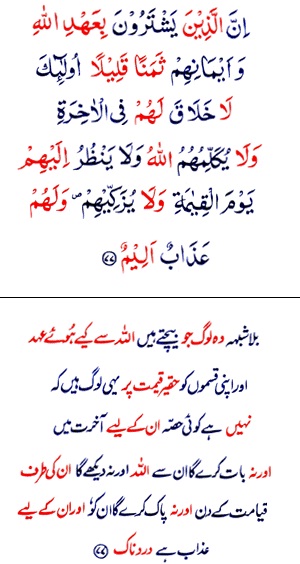 اِنَّ الَّذِیْنَ یَشْتَرُوْنَ بِعَهْدِ اللّٰهِ
وَ اَیْمَانِهِمْ ثَمَنًا قَلِیْلًا اُولٰٓىِٕكَ
لَا خَلَاقَ لَهُمْ فِی الْاٰخِرَةِ
وَ لَا یُكَلِّمُهُمُ اللّٰهُ وَ لَا یَنْظُرُ اِلَیْهِمْ
یَوْمَ الْقِیٰمَةِ وَ لَا یُزَكِّیْهِمْ ۪ وَ لَهُمْ
عَذَابٌ اَلِیْمٌ ﴿۷۷﴾
بلاشبہ وہ لوگ جو بیچتے ہیں اللہ سے کیے ہُوئے عہد
اور اپنی قسموں کو حقیر قیمت پر یہی لوگ ہیں کہ
نہیں ہے کوئی حصّہ ان کے لیے آخرت میں
اور نہ بات کرے گا ان سے اللہ اور نہ دیکھے گا ان کی طرف
قیامت کے دن اور نہ پاک کرے گا ان کو ٗ اور ان کے لیے
عذاب ہے دردناک ﴿۷۷﴾